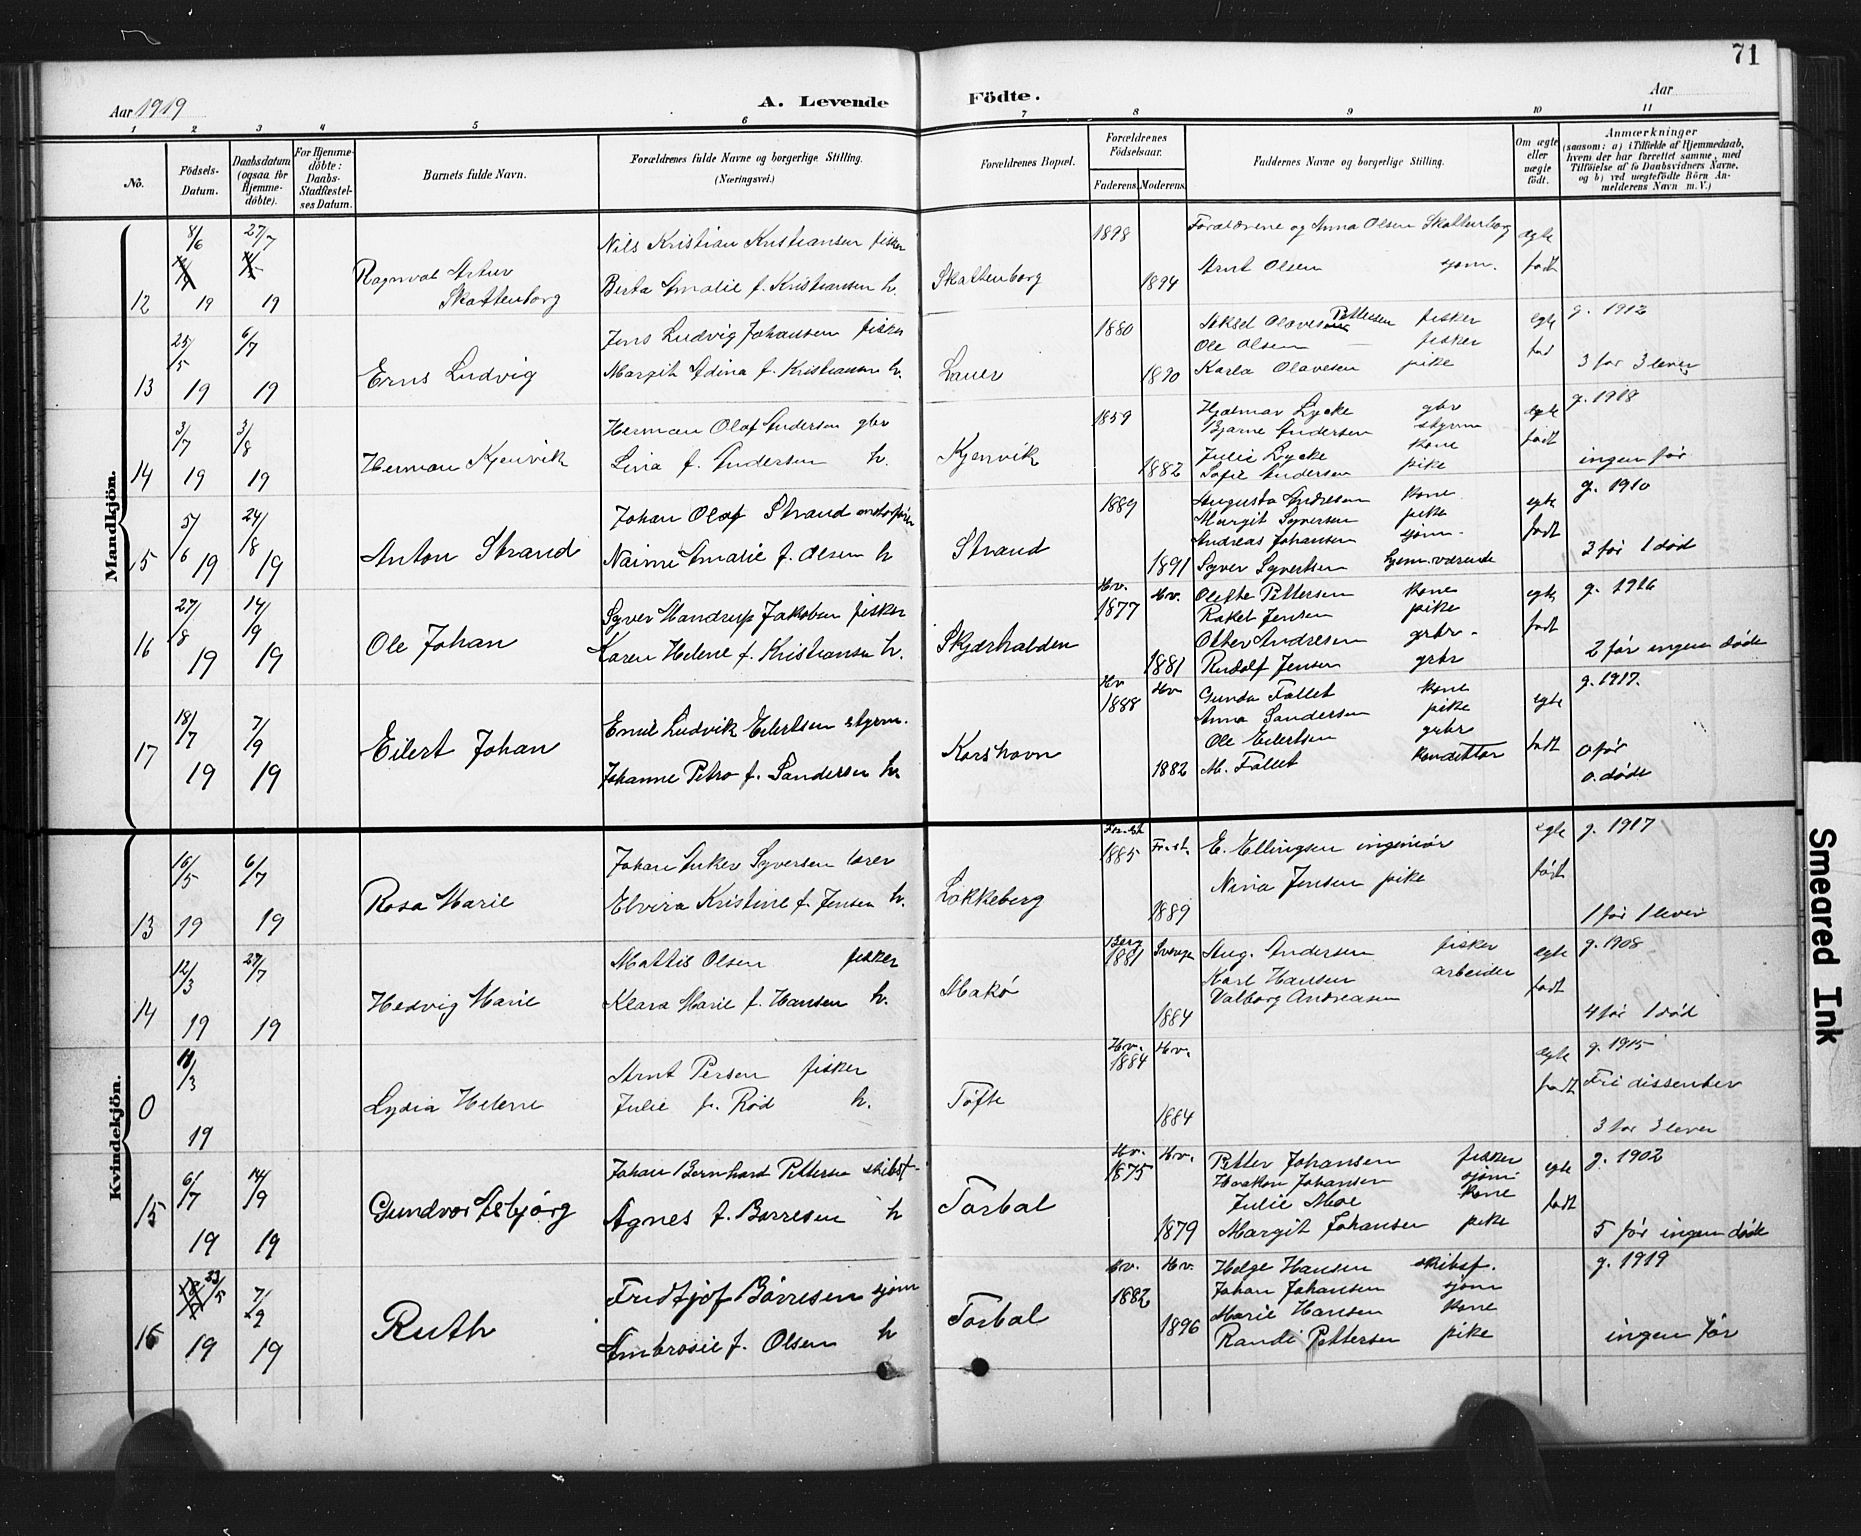 71
Aar 1919
A. Levende Födte.
Aar
1 2 3 4 5 6 7 8 9 10 11
No.
Födsels-Datum.
Daabsdatum (ogsaa for Hjemme-döbte).
For Hjemme-döbte: Daabs-Stadfæstel-ses Datum.
Barnets fulde Navn.
Forældrenes fulde Navne og borgerlige Stilling.
(Næringsvei.)
Forældrenes Bopæl.
Forældrenes Födselsaar.
Faderens. Moderens.
Faddernes Navne og borgerlige Stilling.
Om ægte eller uægte födt.
Anmærkninger
(saasom: a) i Tilfælde af Hjemmedaab, hvem der har forrettet samme, med Tilföielse af to Daabsvidners Navne, og b) ved uægtefödte Börn An-melderens Navn m. V.)
Mandkjön.
12 8/6 19 27/7 19
Ragnvat Artur
Skattenborg
Nils Kristian Kristiansen fisker
Berta Amalie f. Kristiansen h.
Skattenborg
1898 1894
Forældrene og Anna Olsen Skattenborg
Arnt Olsen sjøm.
egte født
13 25/5 19 6/7 19
Erns Ludvig
Jens Ludvig Johansen fisker
Margit Adina f. Kristiansen h.
Lauer
1880 1890
Aksel Pettersen fisker
Ole Olsen fisker
Karla Olavesen pike
egte fød
g. 1912
3 før 3 lever
14 3/7 19 3/8 19
Herman Kjenvik
Herman Olaf Andersen gbr
Lina f. Andersen h.
Kjenvik
1859 1882
Hjalmar Lycke gbr
Bjarne Andersen styrm
Julie Lycke kone
Sofie Andersen pike
egte født
g. 1918
ingen før
15 5/6 19 24/8 19
Anton Strand
Johan Olaf Strand
Naimi Amalie f. Olsen h
Strand
1889 1891
Augusta Andresen kone
Margit Syversen pike
Andreas Johansen sjøm.
Syver Syvertsen hjem.værende
egte født
g. 1910
3 før 1 død
16 27/8 19 14/9 19
Ole Johan
Syver Mandrup Jakobsen fisker
Karen Helene f. Kristiansen h.
Skjærhalden
Hv. 1877 Hv. 1881
Olette Pettersen kone
Rakel Jensen pike
Otter Andresen grbr.
Rudolf Jensen grbr
egte født
g. 1916
2 før ingen døde
17 18/7 19 7/9 19
Eilert Johan
Emil Ludvik Eilertsen styrm.
Johanne Petra f. Sandersen h.
Korshavn
Hv 1888 Hv 1882
Gunda Fallet kone
Anna Sandersen pike
Ole Eilertsen grbr
M. Fallet konduktør
egte født
g. 1917.
0 før
0. døde
Kvindekjön.
13 16/5 19 6/7 19
Rosa Marie
Johan Anker Syversen lærer
Elvira Kristine f. Jensen h.
Løkkeberg
Fr.st. 1885 Fr.st. 1889
E. Ellingsen ingeniør
Nina Jensen pike
egte født
g. 1917
1 før 1 lever
14 12/3 19 27/7 19
Hedvig Marie
Mattis Olsen fisker
Klara Marie f. Hansen h.
Makø
Berg 1881 Sverige 1884
Aug. Andersen fisker
Karl Hansen arbeider
Valborg Andreasen
egte født
g. 1908
4 før 1 død
0 19
Lydia Helene
Arnt Persen fisker
Julie f. Rød h.
Tofte
Hv. 1884 Hv. 1884
egte født
g. 1915
Fri dissenter
3 før 3 lever
15 6/7 19 14/9 19
Gundvor Asbjørg
Johan Bernhard Pettersen skibsf.
Agnes f. Børresen h
Torbal
Hv. 1875 Hv. 1879
Petter Johansen fisker
Haakon Johansen sjøm
Julie Moe kone
Margit Johansen pike
egte født
g. 1902
5 før ingen døde
16 23/5 19 7/9 19
Ruth
Fridtjof Børresen sjøm
Ambrosie f. Olsen h
Torbal
Hv. 1882 Hv. 1896
Helge Hansen skibsf.
Johan Johansen sjøm
Marie Hansen kone
Randi Pettersen pike
g. 1919
ingen før
Smeared Ink